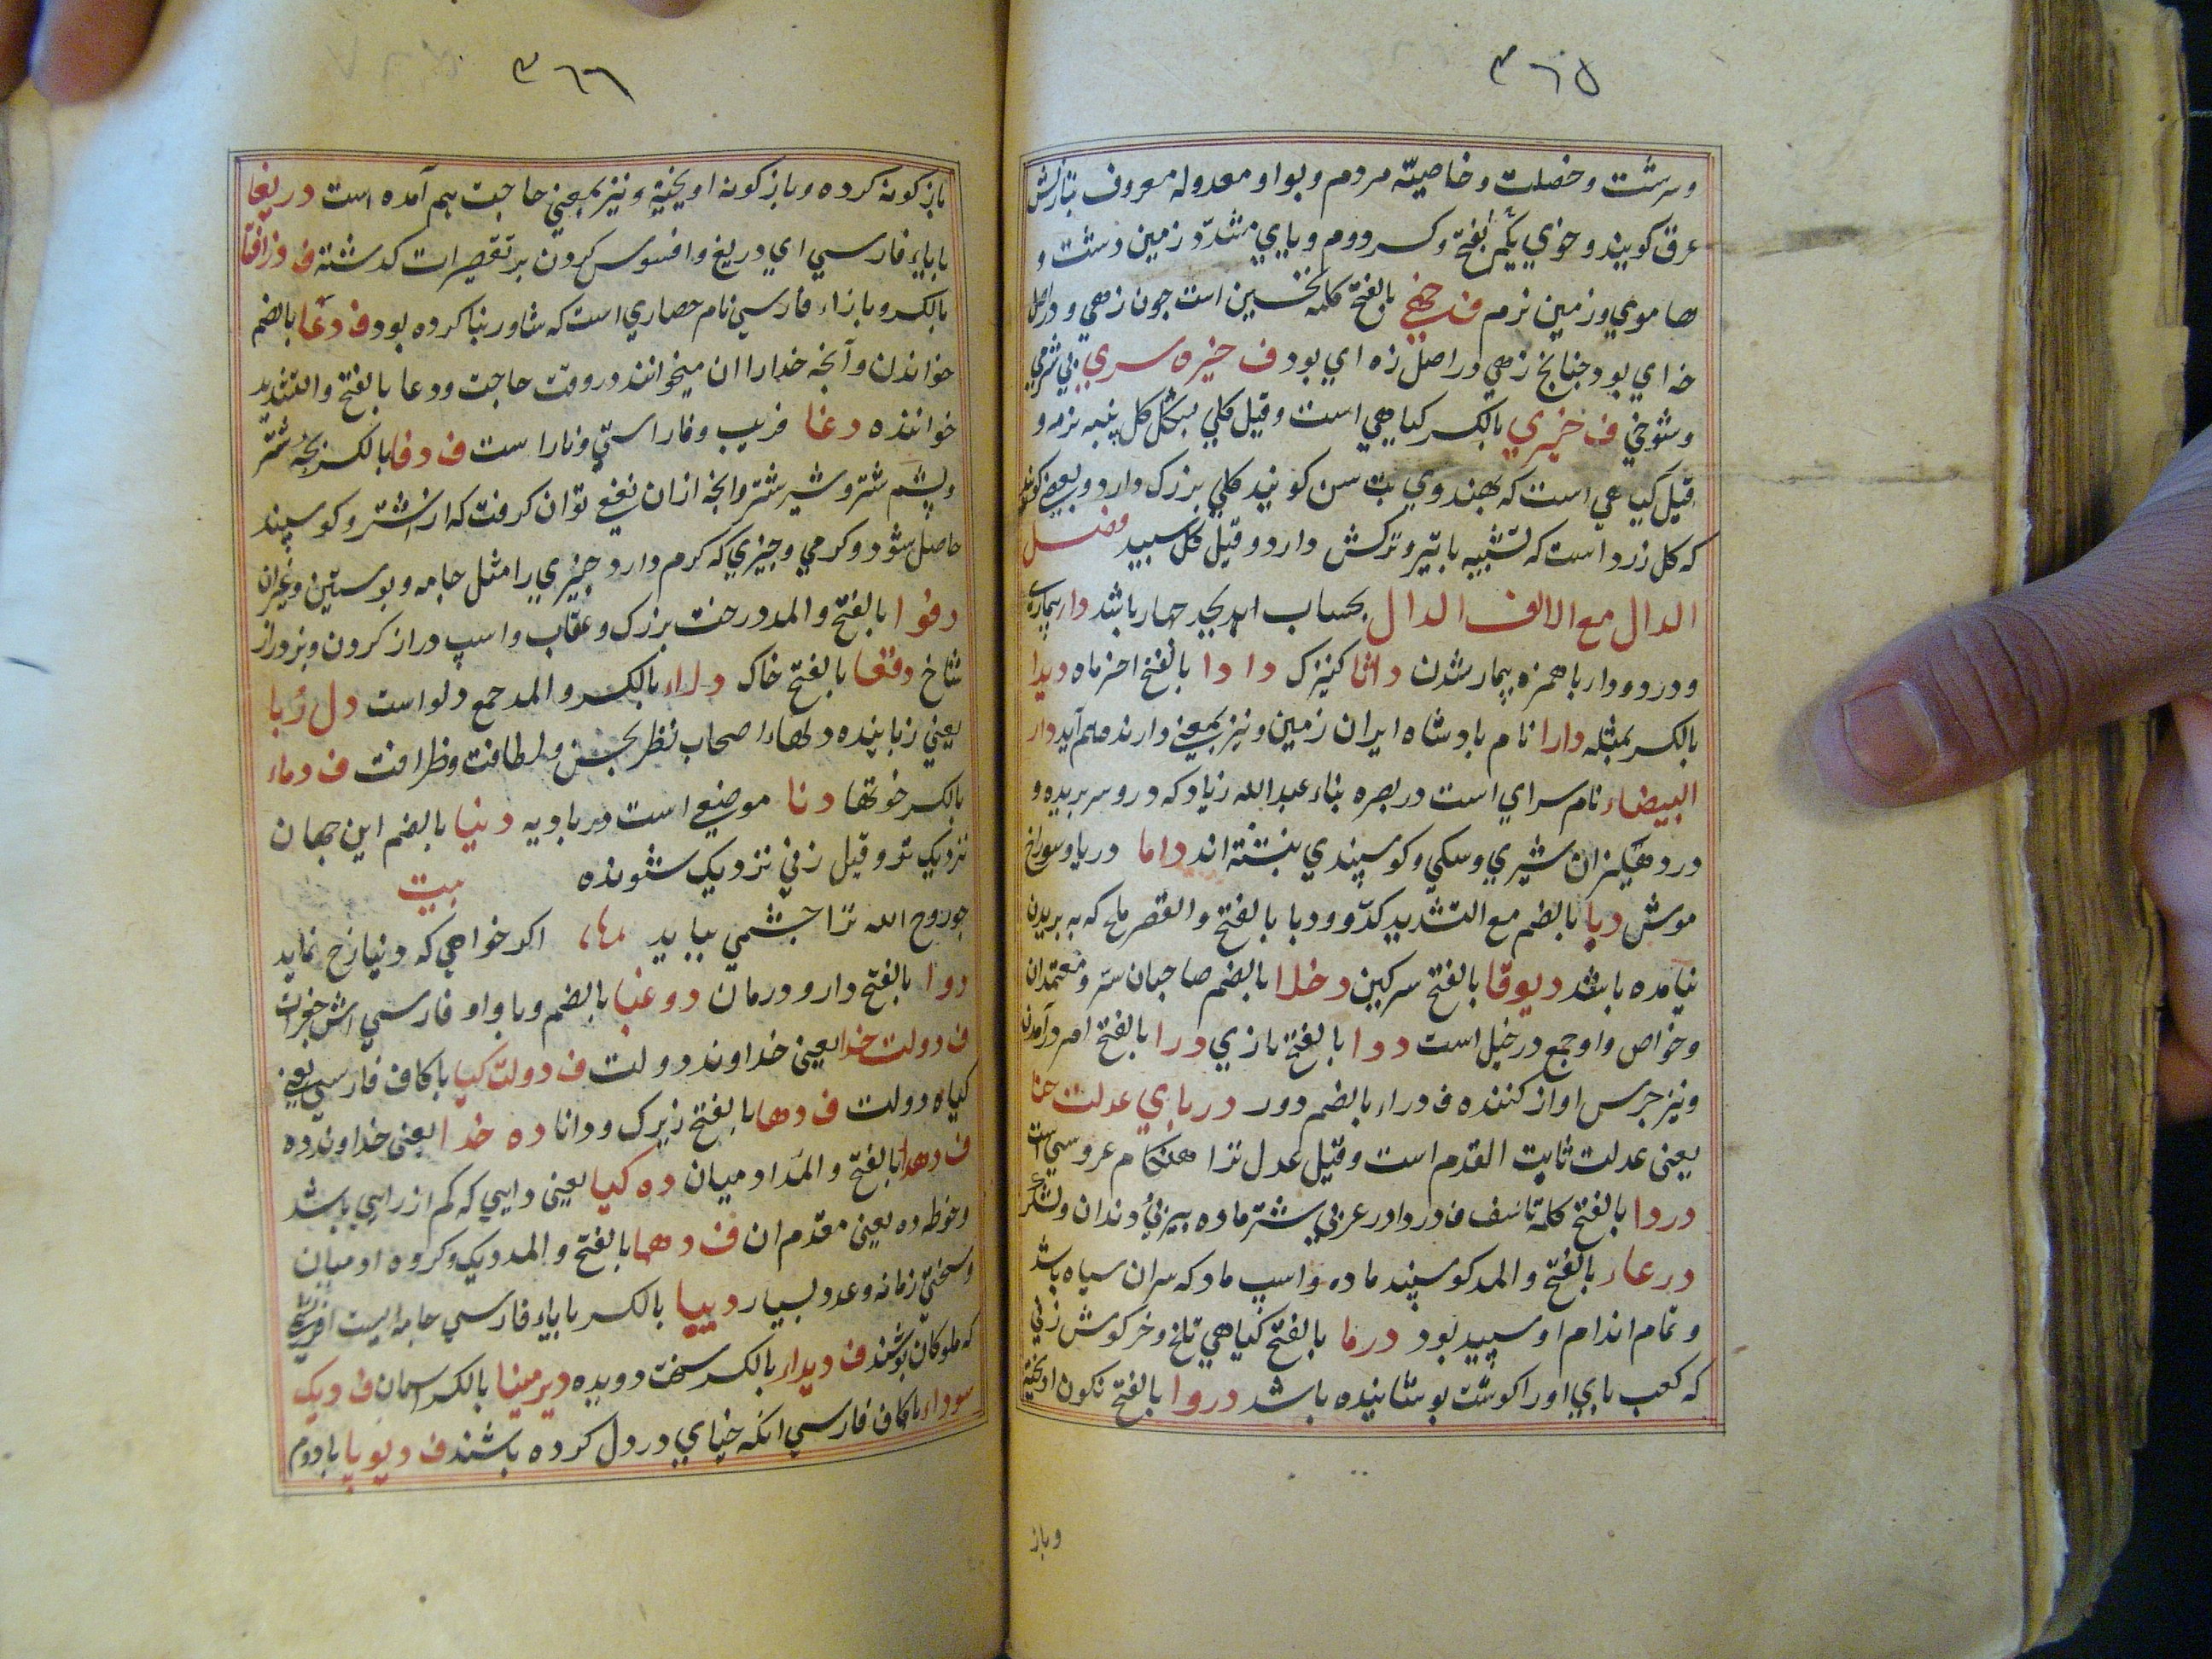 ۳٦۵
و سرشت و خصلت و خاصیته مردم و بواو معدوله معروف بتازیش
عرق کویند و خوی یکم بفتح و کسر دوم و یایی مشدد زمین دشت و
هاموی و زمین نرم ف خهی بالفتح کلمه تحسین است چون زهی و در اصل
خه ای بود چنانچ زهی در اصل زه ای بود ف خیره سری بی شرمی
و شوخی ف خیری بالکسر کیاهی است و قیل کلی بشکل کل پنبه نرمه و
قیل کیاهی است که بهندوی بت سن کویند کلی بزرک دارد و بعضی کویند
که کل زرد است که تشبیه با تیر و ترکش دارد و قیل کل سپید فصل
الدال مع الالف الدال بحساب ابجد چهار باشد داء بیماری
و درد و داء با همزه بیمار شدن داثا کنیزک دادا بالفتح اخر ماه دیدا
بالکسر بمثله دارا نام بادشاه ایران زمین و نیز بمعنی دارنده هم آید دار
البیضاء نام سرای است در بصره بناء عبد الله زیاد که در و سر بریده و
در دهلیز ان شیری و سکی و کوسپندی بنشته اند داما دریا و سوراخ
موش دبا بالضم مع التشدید کدو و دبا بالفتح و القصر ملخ که به بریدن
نیامده باشد دبوقا بالفتح سرکین دخلا بالضم صاحبان سر و معتمدان
و خواص و او جمع دخیل است ددا بالفتح بازی درا بالفتح امر در آمدن
و نیز جرس اواز کننده ف دراء بالضم دور دربای عدلت حنا
یعنی عدلت ثابت القدم است و قیل عدل ترا هنکام عروسی است
دردا بالفتح کلمه تاسف ف دردا در عربی شتر ماده پیر بی دندان و لشکر
درعاء بالفتح و المد کوسپند ماده و اسپ ماد که سران سیاه باشد
و تمام اندام او سپید بود درما بالفتح کیاهی تلخ و خرکوش زنی
که کعب پای اورا کوشت پوشانیده باشد دروا بالفتح نکون اویخته
و باز
۳٦٦
باز کونه کرده و باز کونه اویخته و نیز بمعنی حاجت هم آمده است دریغا
با یاء فارسی ای دریغ و افسوس کردن بر تقصیرات کدشته ف دزافتا
بالکسر و با زاء فارسی نام حصاری است که شاور بنا کرده بود ف دعا بالضم
خواندن و آنچه خدارا ان میخوانند در وقت حاجت و دعا بالفتح و التشدید
خواننده دغا فریب و ناراستی و ناراست ف دفا بالکسر بچه شتر
و پشم شتر و شیر شتر و انچه ازان نفع توان کرفت که از اشتر و کوسپند
حاصل شود و کرمی و چیزی که کرم دارد چیزی را مثل جامه و پوستین و غیران
دفوا بالفتح و المد درخت بزرک و عقاب و اسپ دراز کردن و بز دراز
شاخ دقعا بالفتح خاک دلاء بالکسر و المد جمع دلو است دل ربا
یعنی ربایپنده دلهاء اصحاب نظر بحسن و لطافت و ظرافت ف دماء
بالکسر خونها دنا موضعی است در بادیه دنیا بالضم این جهان
نزدیک تر و قیل زنی نزدیک شونده بیت
چو روح الله ترا چشمی بباید اکر خواهی که دنیا رخ نماید
دوا بالفتح دارو و درمان دوغبا بالضم و با واو فارسی اش جغرات
ف دولت خدا یعنی خداوند دولت ف دولت کیا با کاف فارسی یعنی
کیاه دولت ف دها بالفتح زیرک و دانا ده خدا یعنی خداوند ده
ف دهدا بالفتح و المد ادمیان ده کیا یعنی دایی که کم از رایی باشد
و خوطه ده یعنی مقدم ان ف دهما بالفتح و المد دیک و کروه ادمیان
و سختی زمانه و عدد بسیار دیبا بالکسر با یاء فارسی جامه ایست ابریشمی
که ملوکان پوشند ف دیداء بالکسر سخت دویده دیر مینا بالکسر اسمان ف دیک
سوداء با کاف فارسی انکه خیالی در دل کرده باشند ف دیوپا با دوم